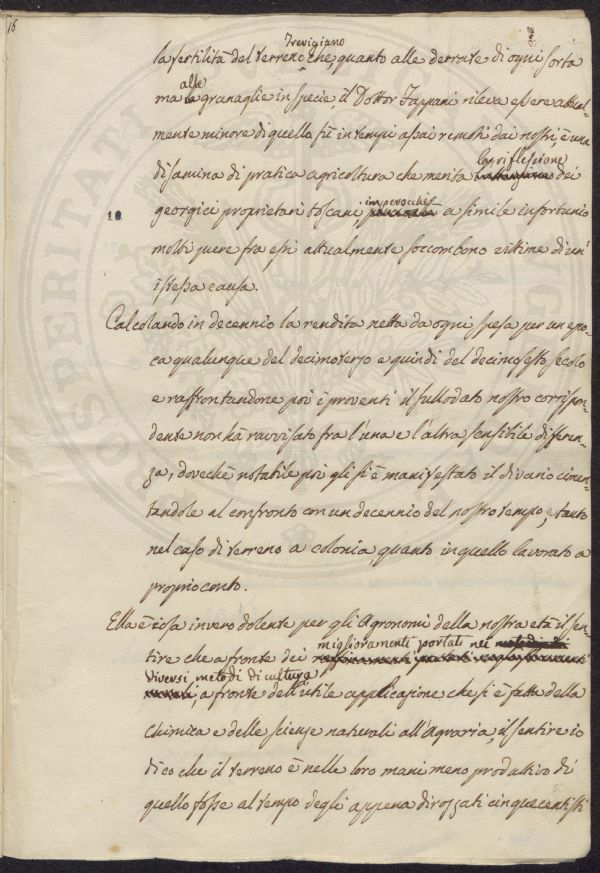 16
Trevigiano
la fertilità del terreno che, quanto alle derrate di ogni sorta
alle
ma le granaglie in specie, il Dottor Fappani rileva essere attual-
mente minore di quella fù in tempi assai remoti dai nostri, è una
disamina di pratica agricoltura che merita la riflessione dei
georgici proprietari toscani, imperocchè a simile infortunio
10
molti pure fra essi attualmente soccombono vittime di un'
istessa causa.
Calcolando in decennio la rendita netta da ogni spesa per un epo-
ca qualunque del decimoterzo e quindi del decimosesto secolo
e raffrontandone poi i proventi il sullodato nostro corrispon-
dente non hà ravvisato fra l'una e l'altra sensibile differen-
za, dovechè notabile poi gli si è manifestato il divario cimen-
tandole al confronto con un decennio del nostro tempo, e tanto
nel caso di terreno a colonia quanto in quello lavorato a
proprio conto.
Ella è cosa invero dolente per gli Agronomi della nostra età il sen-
miglioramenti portati nei
tire che a fronte dei
diversi metodi di cultura
, a fronte dell'utile applicazione che si è fatta della
Chimica e delle scienze naturali all'Agraria, il sentire io
dico che il terreno è nelle loro mani meno produttivo di
quello fosse al tempo degli appena dirozzati cinquecentisti